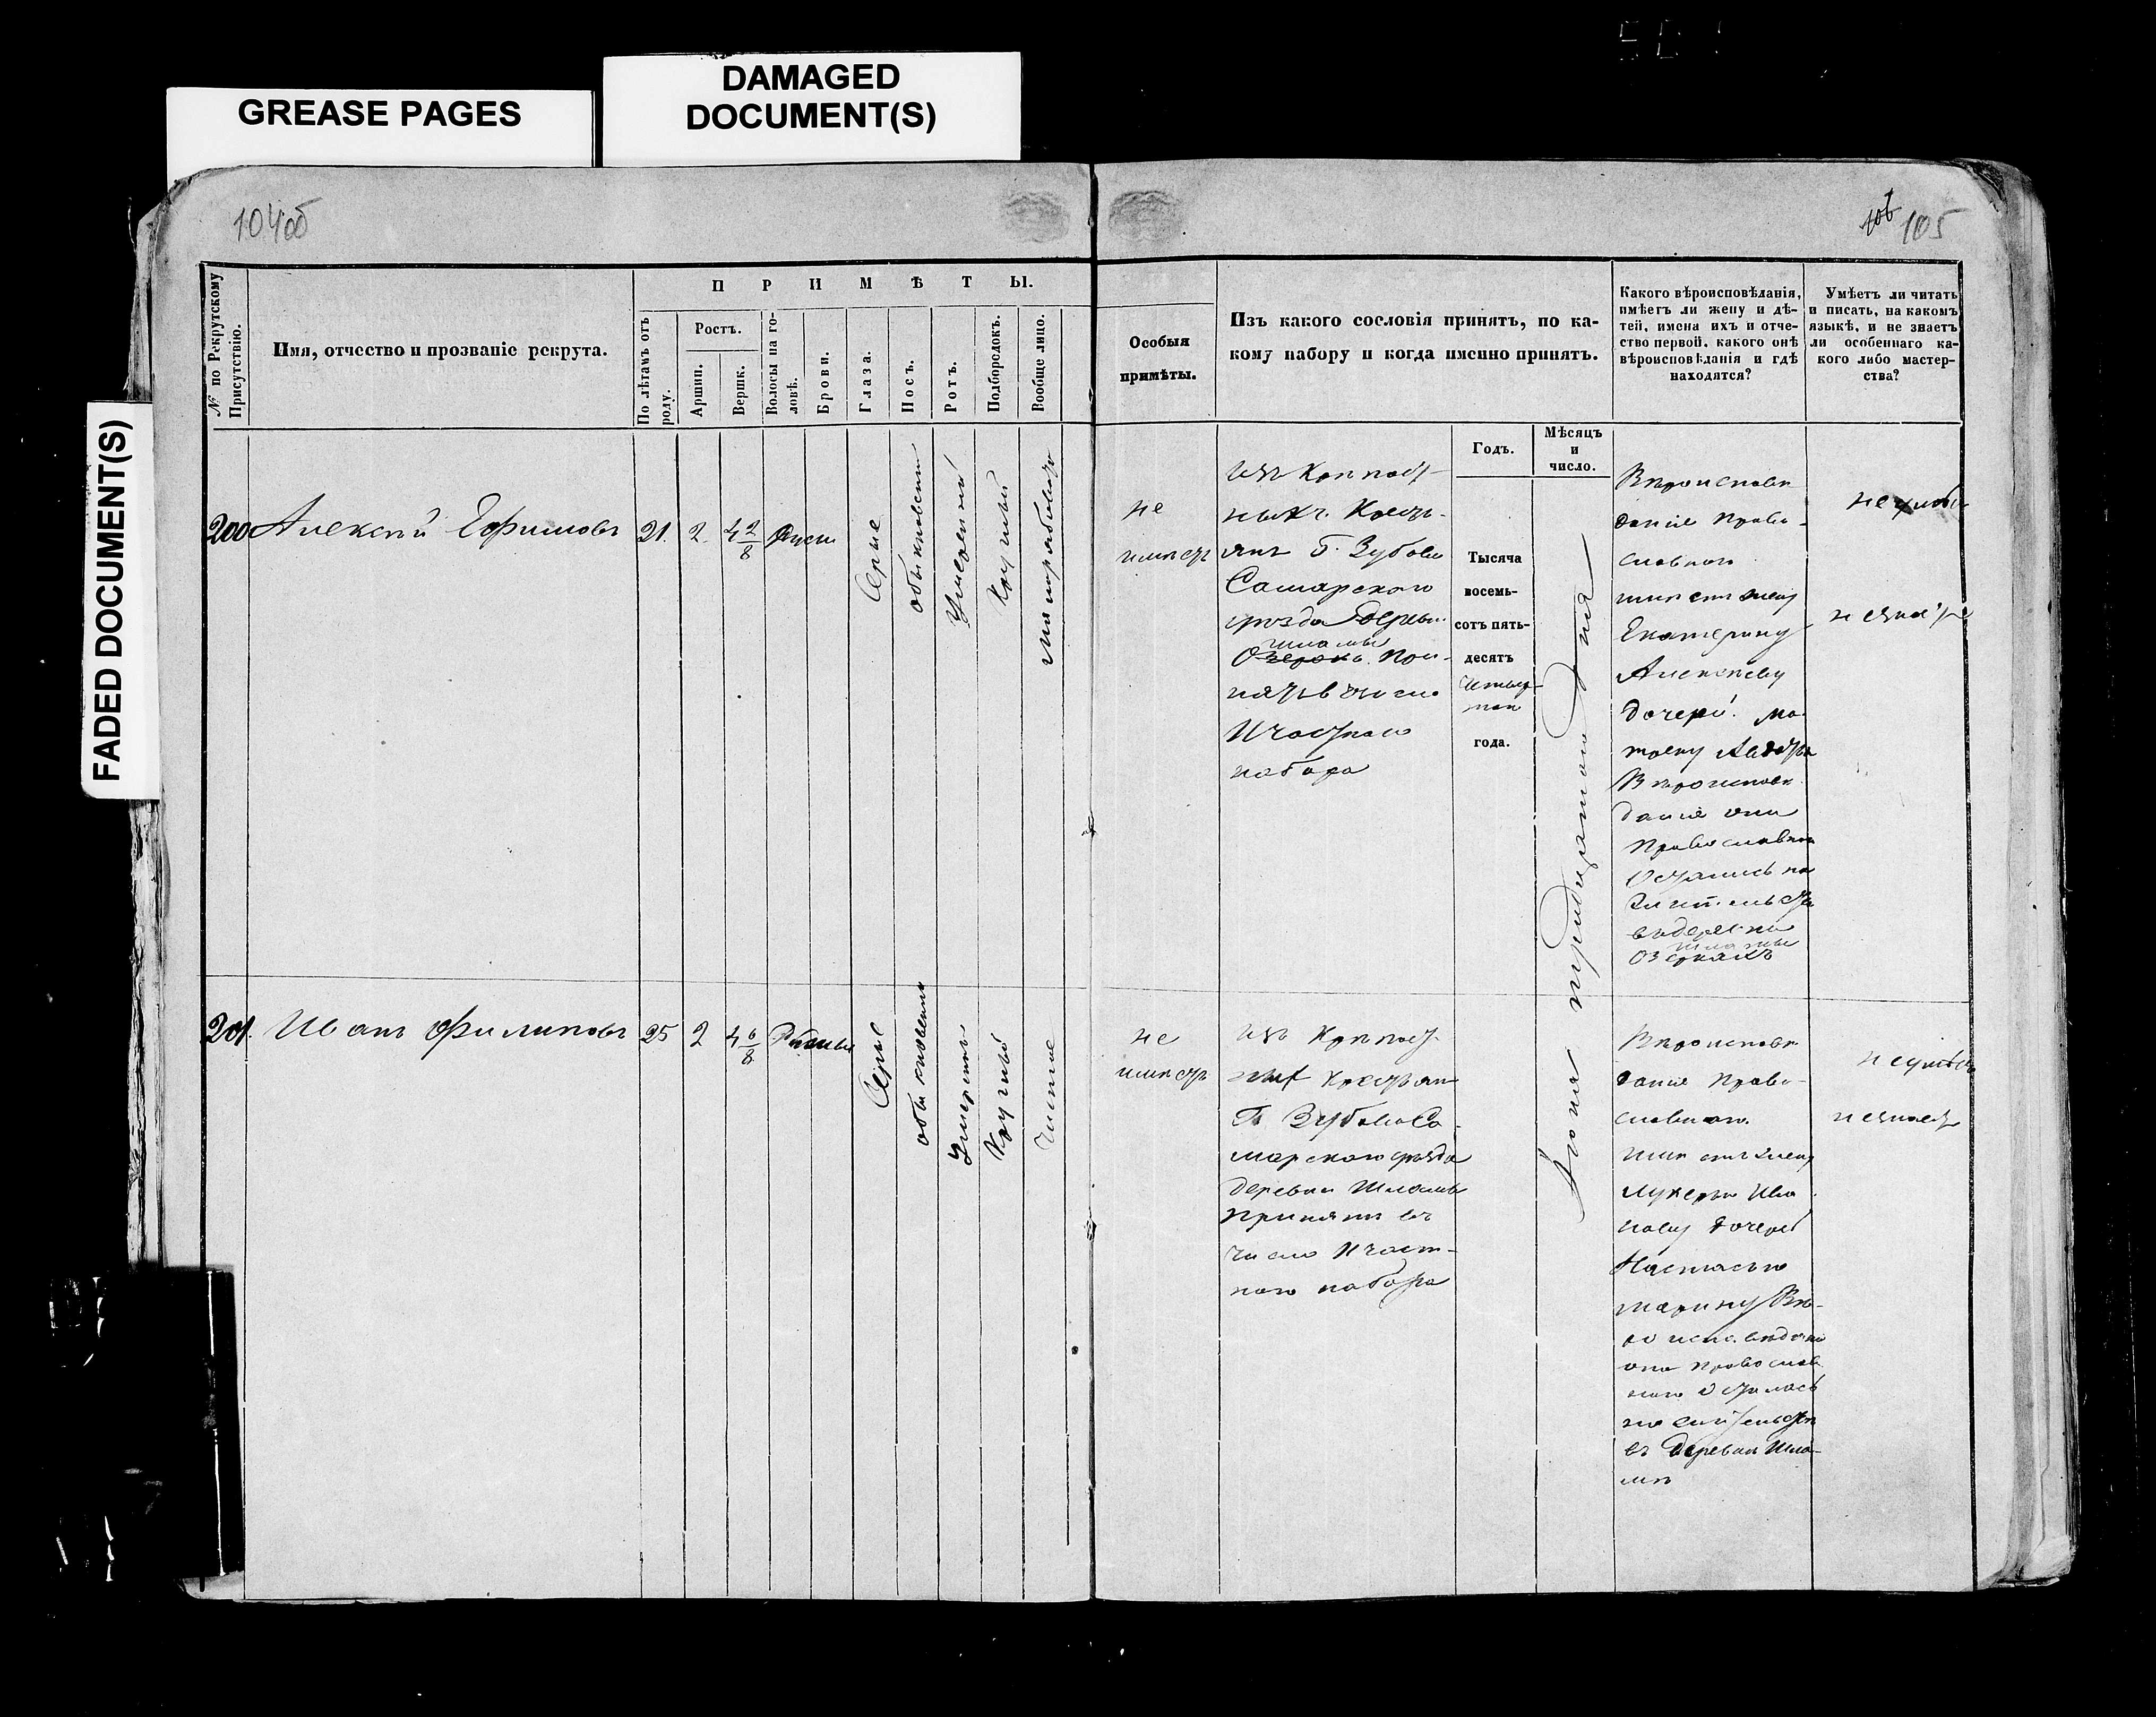 GREASE PAGES
DAMAGED
DOCUMENT(S)
FADED DOCUMENT(S)
104об
106 105
№ по Рекрутскому
Присутствію.
Имя, отчество и прозваніе рекрута.
ПРИМѢТЫ.
По лѣтамъ отъ
роду.
Ростъ.
Аршин.
Вершк.
Волосы на го-
ловѣ.
Брови.
Глаза.
Носъ.
Ротъ.
Подбородокъ.
Вообще лицо.
Особыя
примѣты.
Изъ какого сословія принятъ, по ка-
кому набору и когда именно принятъ.
Какого вѣроисповѣданія,
имѣетъ ли жену и дѣ-
тей, имена ихъ и отче-
ство первой, какого онѣ
вѣроисповѣданія и гдѣ
находятся?
Умѣетъ ли читать
и писать, на какомъ
языкѣ, и не знаетъ
ли особеннаго ка-
кого либо мастер-
ства?
Годъ.
Мѣсяцъ
и
число.
200 Алексѣй Ефимовъ
21.
2.
4 2/8
Русы
Серые
обыкновенный
Умеренный
Круглый
не
имѣетъ
изъ Крѣпост-
ныхъ Кресть-
янъ Г. Зубова
Самарского
уѣзда Деревни
Шламы
Озерокъ. При-
нятъ в число
И частнаго
набора
Тысяча
восемь-
сотъ пять-
десятъ
Четвер-
таго
года.
Юня тридцатаго дня
Вѣроисповѣ
данія Право-
славнаго
имѣетъ жену
Екатерину
Алексѣеву
дочерей. Ма
трену Авдотью
Вѣроисповѣ
данія они
Православнаго
Остались на
Жительстве
въ деревни
Шламы
Озеркахъ
не умѣетъ
не знаетъ
201. Иванъ Филиповъ
25
2
4 6/8
Серые
обыкновенный
Умеренный
Круглый
Чистое
не
имѣетъ
изъ Крѣпост
ныхъ Крестьян
Г. Зубова Са
марского уѣзда
деревни Шламы
Принятъ въ
число И част-
наго набора
Вѣроисповѣ
данія Право-
славнаго.
имѣетъ жену
Лукерью Ива
нову дочерей
Настасью
Марину Вѣ-
роисповѣданія
она православ
наго Осталась
на жительстве
въ деревни Шла-
мѣ
не умѣетъ
не знаетъ